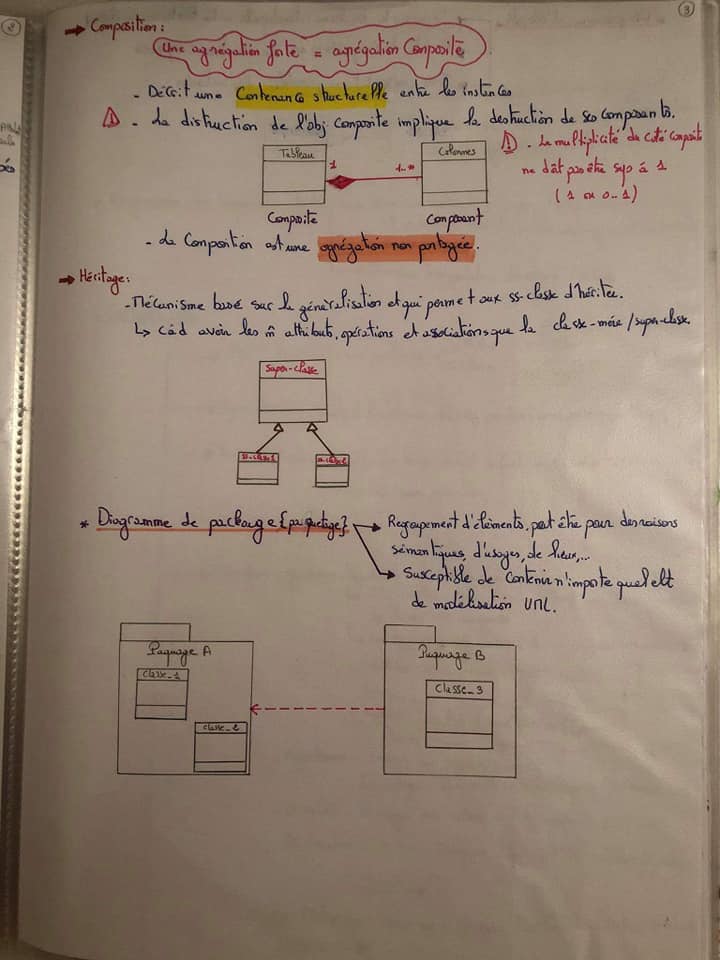 3
→ Composition :
Une agrégation forte = agrégation Composite
- Décrit une Contenance structurelle entre les instances
⚠ - La distruction de l'obj Composite implique la destruction de ses Composants.
Tableau 1 1..* Colonnes
Composite Composant
⚠ - La multiplicité du coté Composite
ne doit pas être sup à 1
( 1 ou 0..1 )
- La Composition est une agrégation non partagée.
→ Héritage :
- Mécanisme basé sur la généralisation et qui permet aux ss-classe d'héritée.
↳ Càd avoir les m̂ attributs, opérations et associations que la classe-mère / super-classe.
Super-classe
ss-classe1
* Diagramme de package {paquetage}
→ Regroupement d'éléments, peut être pour des raisons
sémantiques, d'usages, de lieux,...
→ Susceptible de Contenir n'importe quel elt
de modélisation UML.
Paquage A
Classe_1
classe_2
Paquage B
Classe_3
2